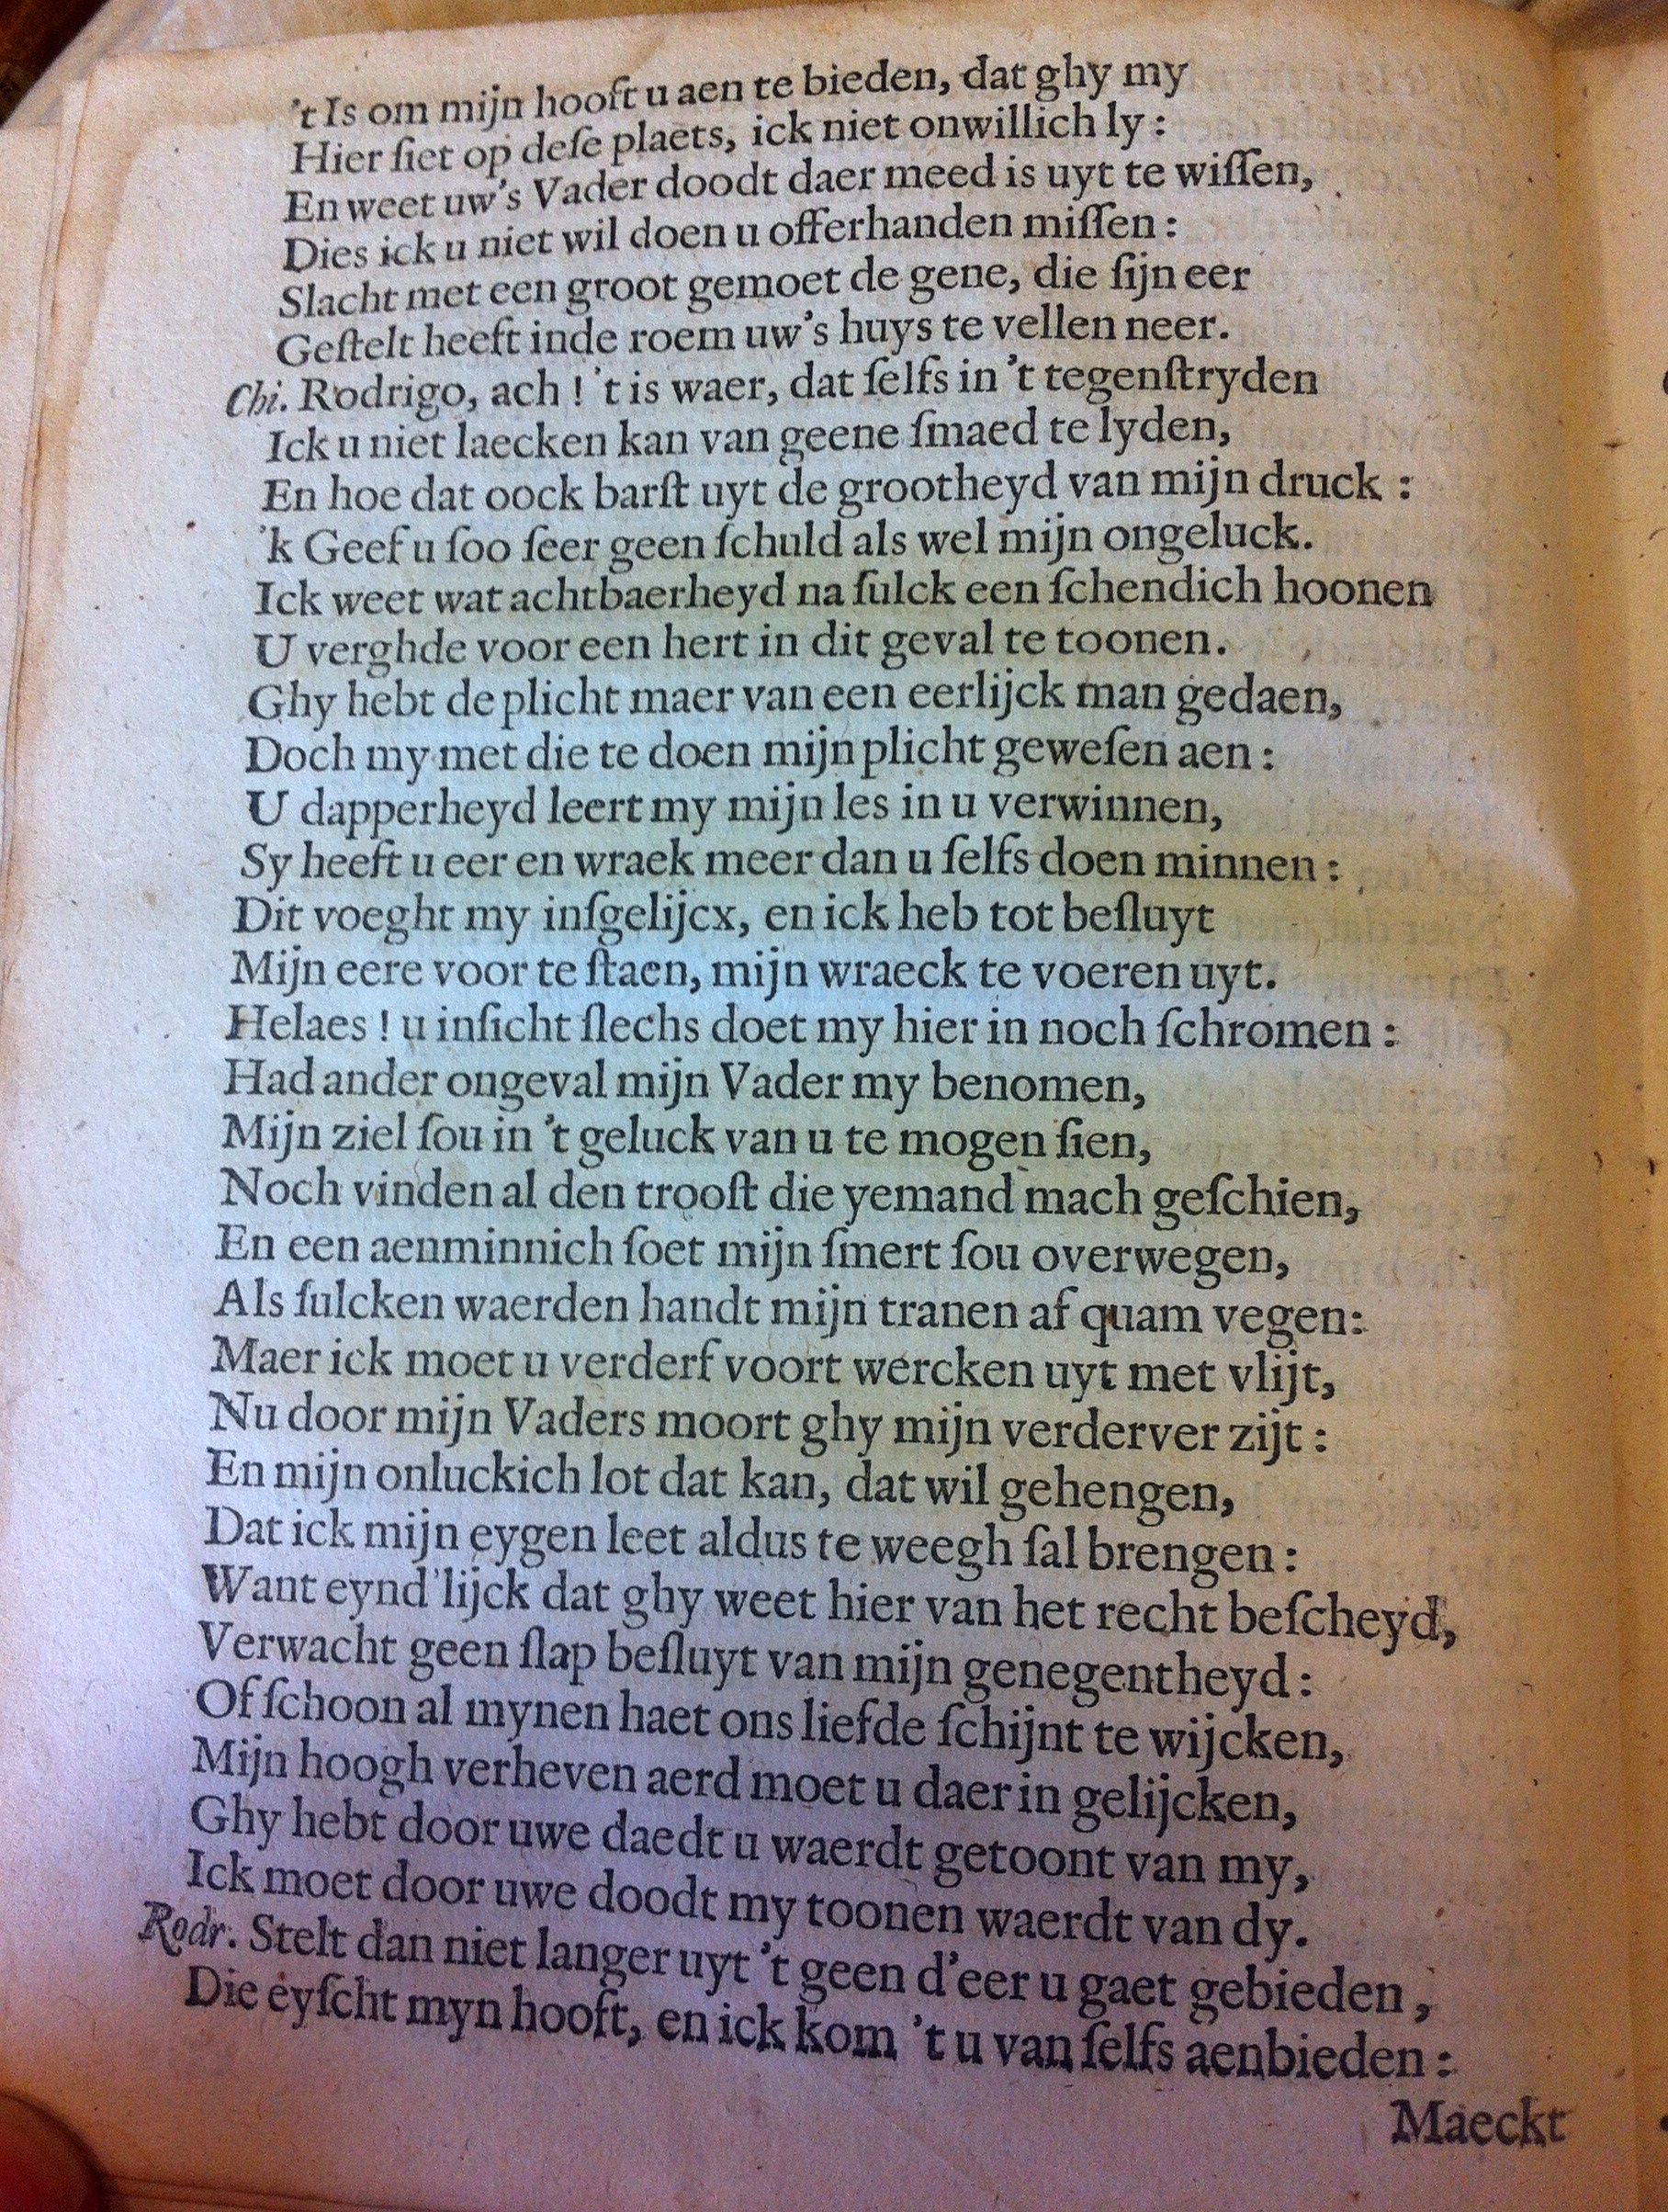 't Is om mijn hooft u aen te bieden, dat ghy my
Hier ſiet op deſe plaets, ick niet onwillich ly:
En weet uw's Vader doodt daer meed is uyt te wiſſen,
Dies ick u niet wil doen u offerhanden miſſen:
Slacht met een groot gemoet de gene, die ſijn eer
Geſtelt heeft inde roem uw's huys te vellen neer.
Chi. Rodrigo, ach! 't is waer, dat ſelfs in 't tegenſtryden
Ick u niet laecken kan van geene ſmaed te lyden,
En hoe dat oock barſt uyt de grootheyd van mijn druck:
'k Geef u ſoo ſeer geen ſchuld als wel mijn ongeluck.
Ick weet wat achtbaerheyd na ſulck een ſchendich hoonen
U verghde voor een hert in dit geval te toonen.
Ghy hebt de plicht maer van een eerlijck man gedaen,
Doch my met die te doen mijn plicht geweſen aen:
U dapperheyd leert my mijn les in u verwinnen,
Sy heeft u eer en wraek meer dan u ſelfs doen minnen:
Dit voeght my inſgelijcx, en ick heb tot beſluyt
Mijn eere voor te ſtaen, mijn wraeck te voeren uyt.
Helaes! u inſicht ſlechs doet my hier in noch ſchromen:
Had ander ongeval mijn Vader my benomen,
Mijn ziel ſou in 't geluck van u te mogen ſien,
Noch vinden al den trooſt die yemand mach geſchien,
En een aenminnich ſoet mijn ſmert ſou overwegen,
Als ſulcken waerden handt mijn tranen af quam vegen:
Maer ick moet u verderf voort wercken uyt met vlijt,
Nu door mijn Vaders moort ghy mijn verderver zijt:
En mijn onluckich lot dat kan, dat wil gehengen,
Dat ick mijn eygen leet aldus te weegh ſal brengen:
Want eynd'lijck dat ghy weet hier van het recht beſcheyd,
Verwacht geen ſlap beſluyt van mijn genegentheyd:
Of ſchoon al mynen haet ons liefde ſchijnt te wijcken,
Mijn hoogh verheven aerd moet u daer in gelijcken,
Ghy hebt door uwe daedt u waerdt getoont van my,
Ick moet door uwe doodt my toonen waerdt van dy.
Rodr. Stelt dan niet langer uyt 't geen d'eer u gaet gebieden,
Die eyſcht myn hooft, en ick kom 't u van ſelfs aenbieden:
Maeckt